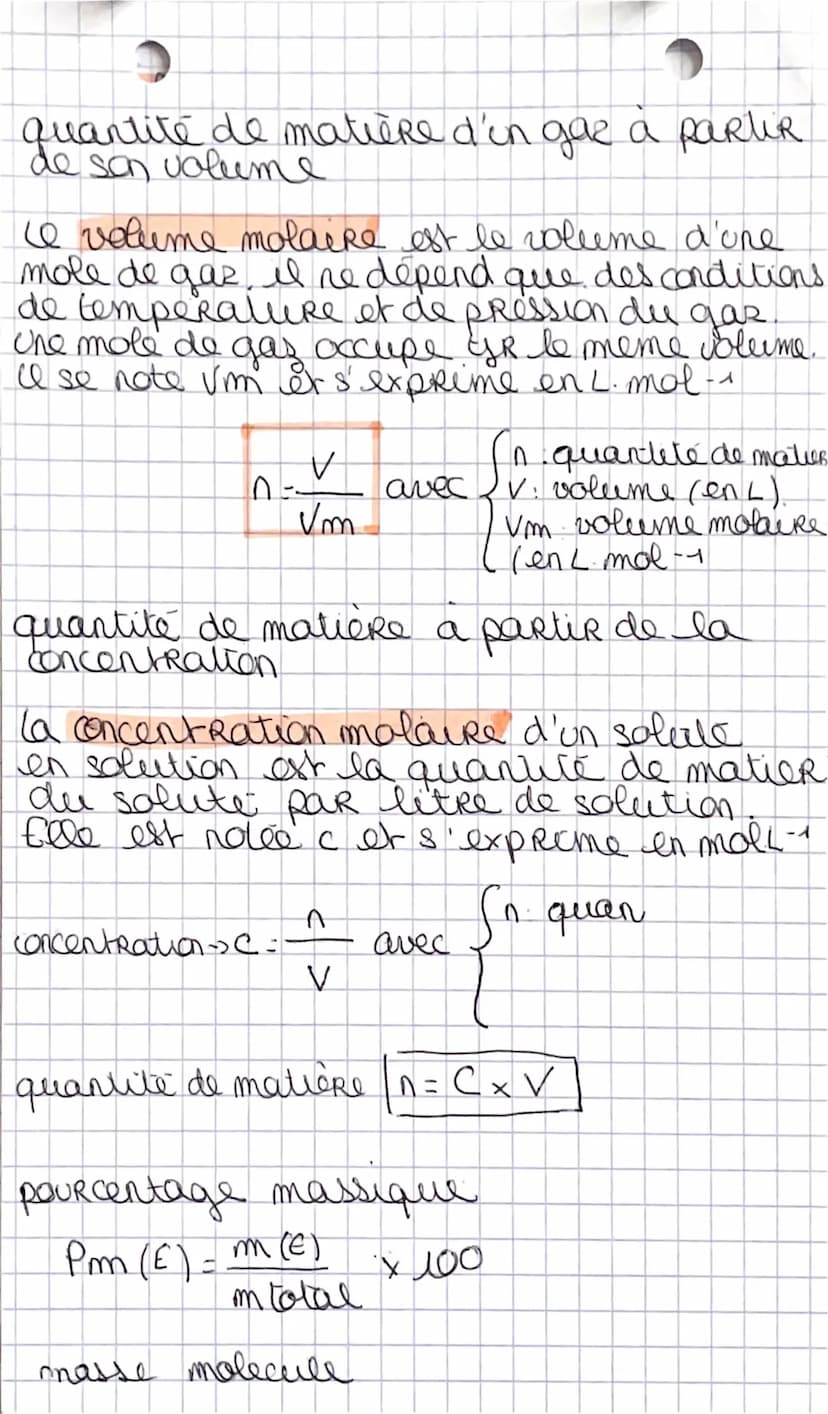 quantité de matière d'un gaz à partir
de son volume
Le volume molaire est le volume d'une
mole de gaz. il ne dépend que des conditions
de température et de pression du gaz.
Une mole de gaz occupe tjr le meme volume.
Il se note Vm et s'exprime en L. mol-1
n = V / Vm avec { n : quantité de matier
V : volume (en L).
Vm : volume molaire
(en L. mol-1
quantité de matière à partir de la
concentration
La concentration molaire d'un soluté
en solution est la quantité de matier
du soluté par litre de solution.
Elle est notée c et s'exprime en mol L-1
concentration -> C = n / V avec { n : quan
quantité de matière n = C x V
pourcentage massique
Pm (E) = m (E) / m total x 100
masse molecule